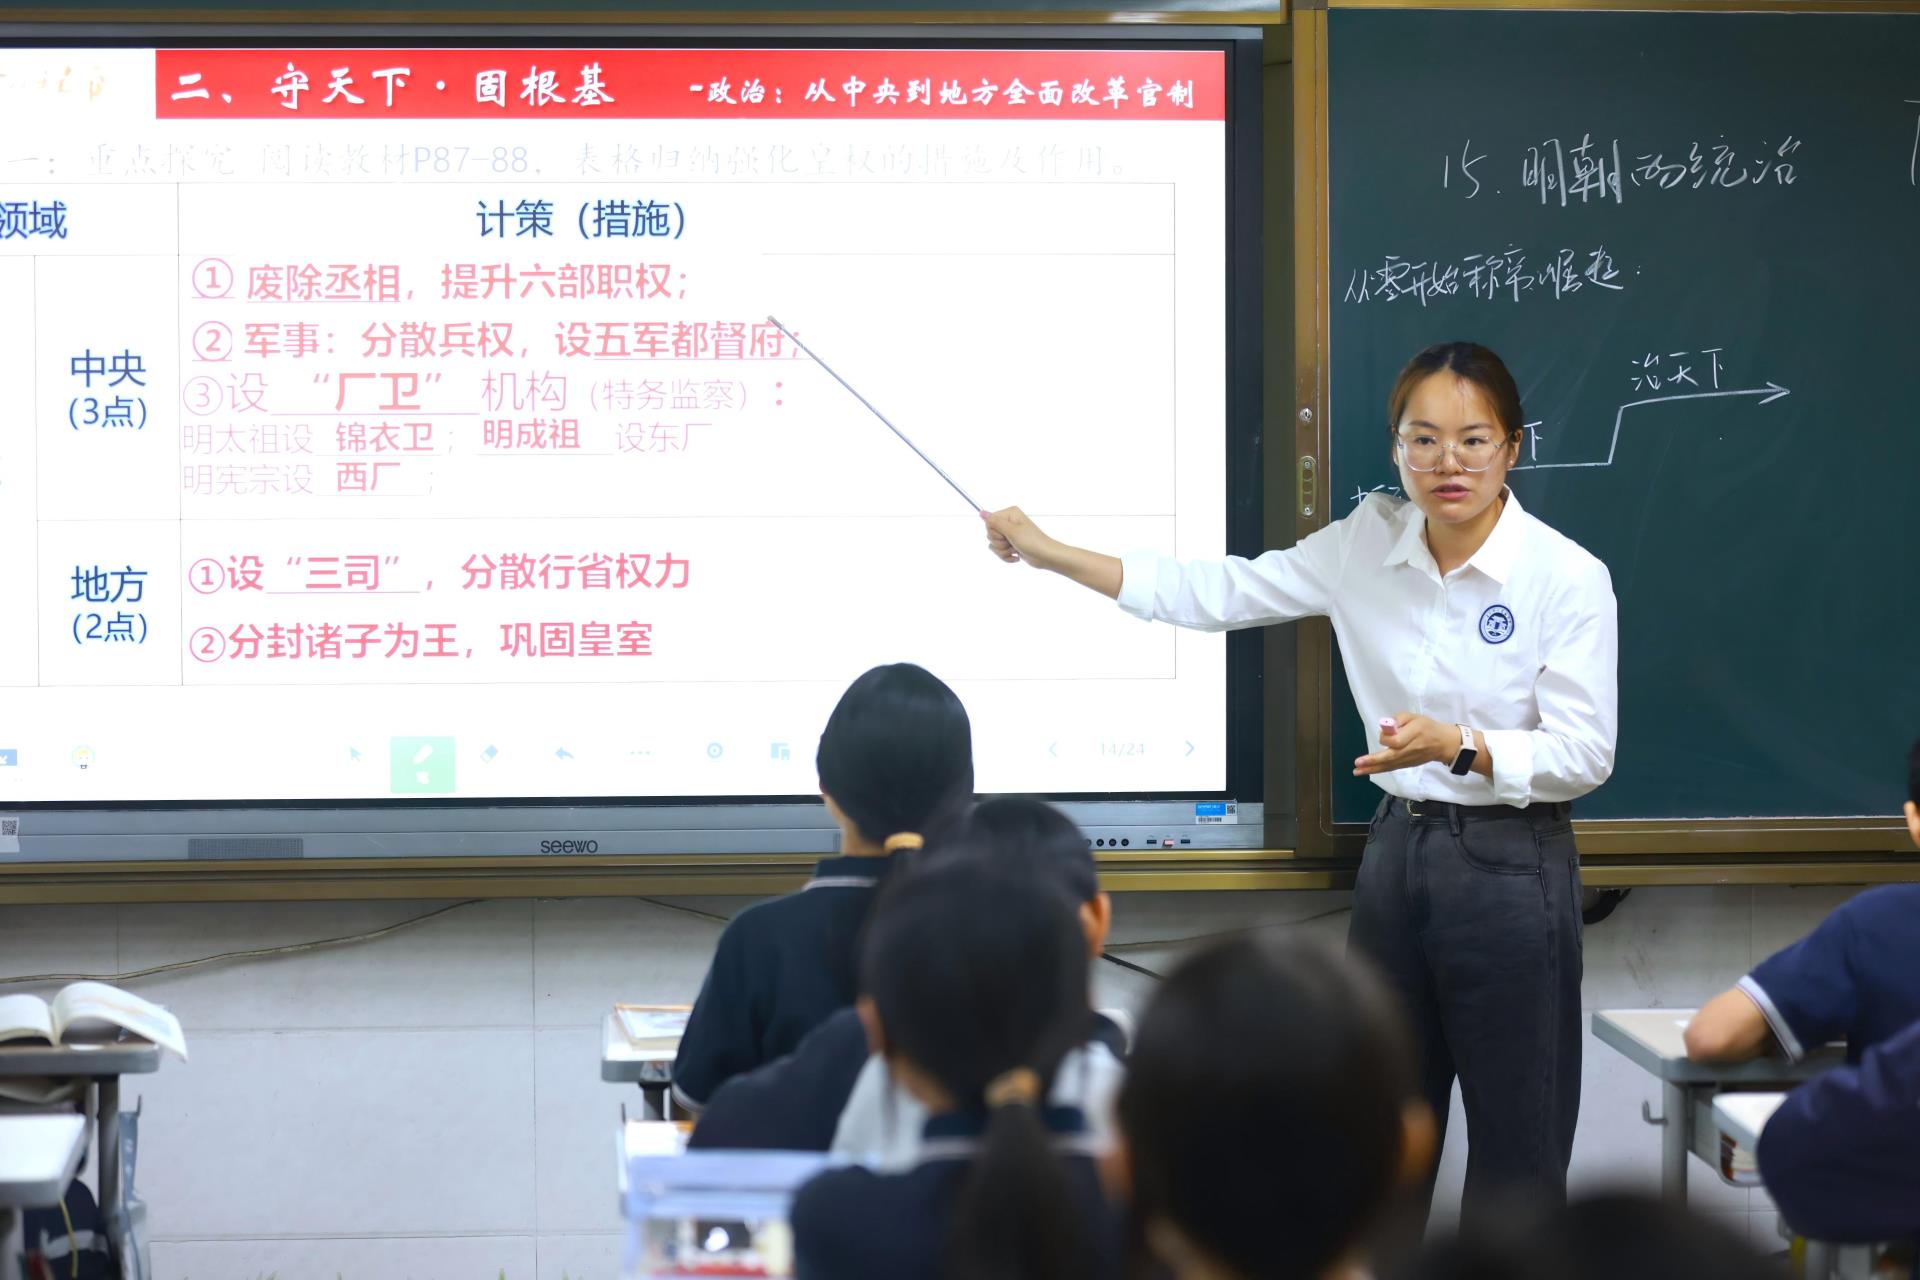 二、守天下·固根基 -政治：从中央到地方全面改革官制
一：重点探究 阅读教材P87-88，表格归纳强化皇权的措施及作用。
领域 计策（措施）
中央
(3点)
① 废除丞相，提升六部职权；
② 军事：分散兵权，设五军都督府；
③设 “厂卫” 机构（特务监察）：
明太祖设 锦衣卫； 明成祖 设东厂
明宪宗设 西厂；
地方
(2点)
①设“三司”，分散行省权力
②分封诸子为王，巩固皇室
笔
14/24
seewo
15.明朝的统治
从零开始称帝崛起：
治天下
下